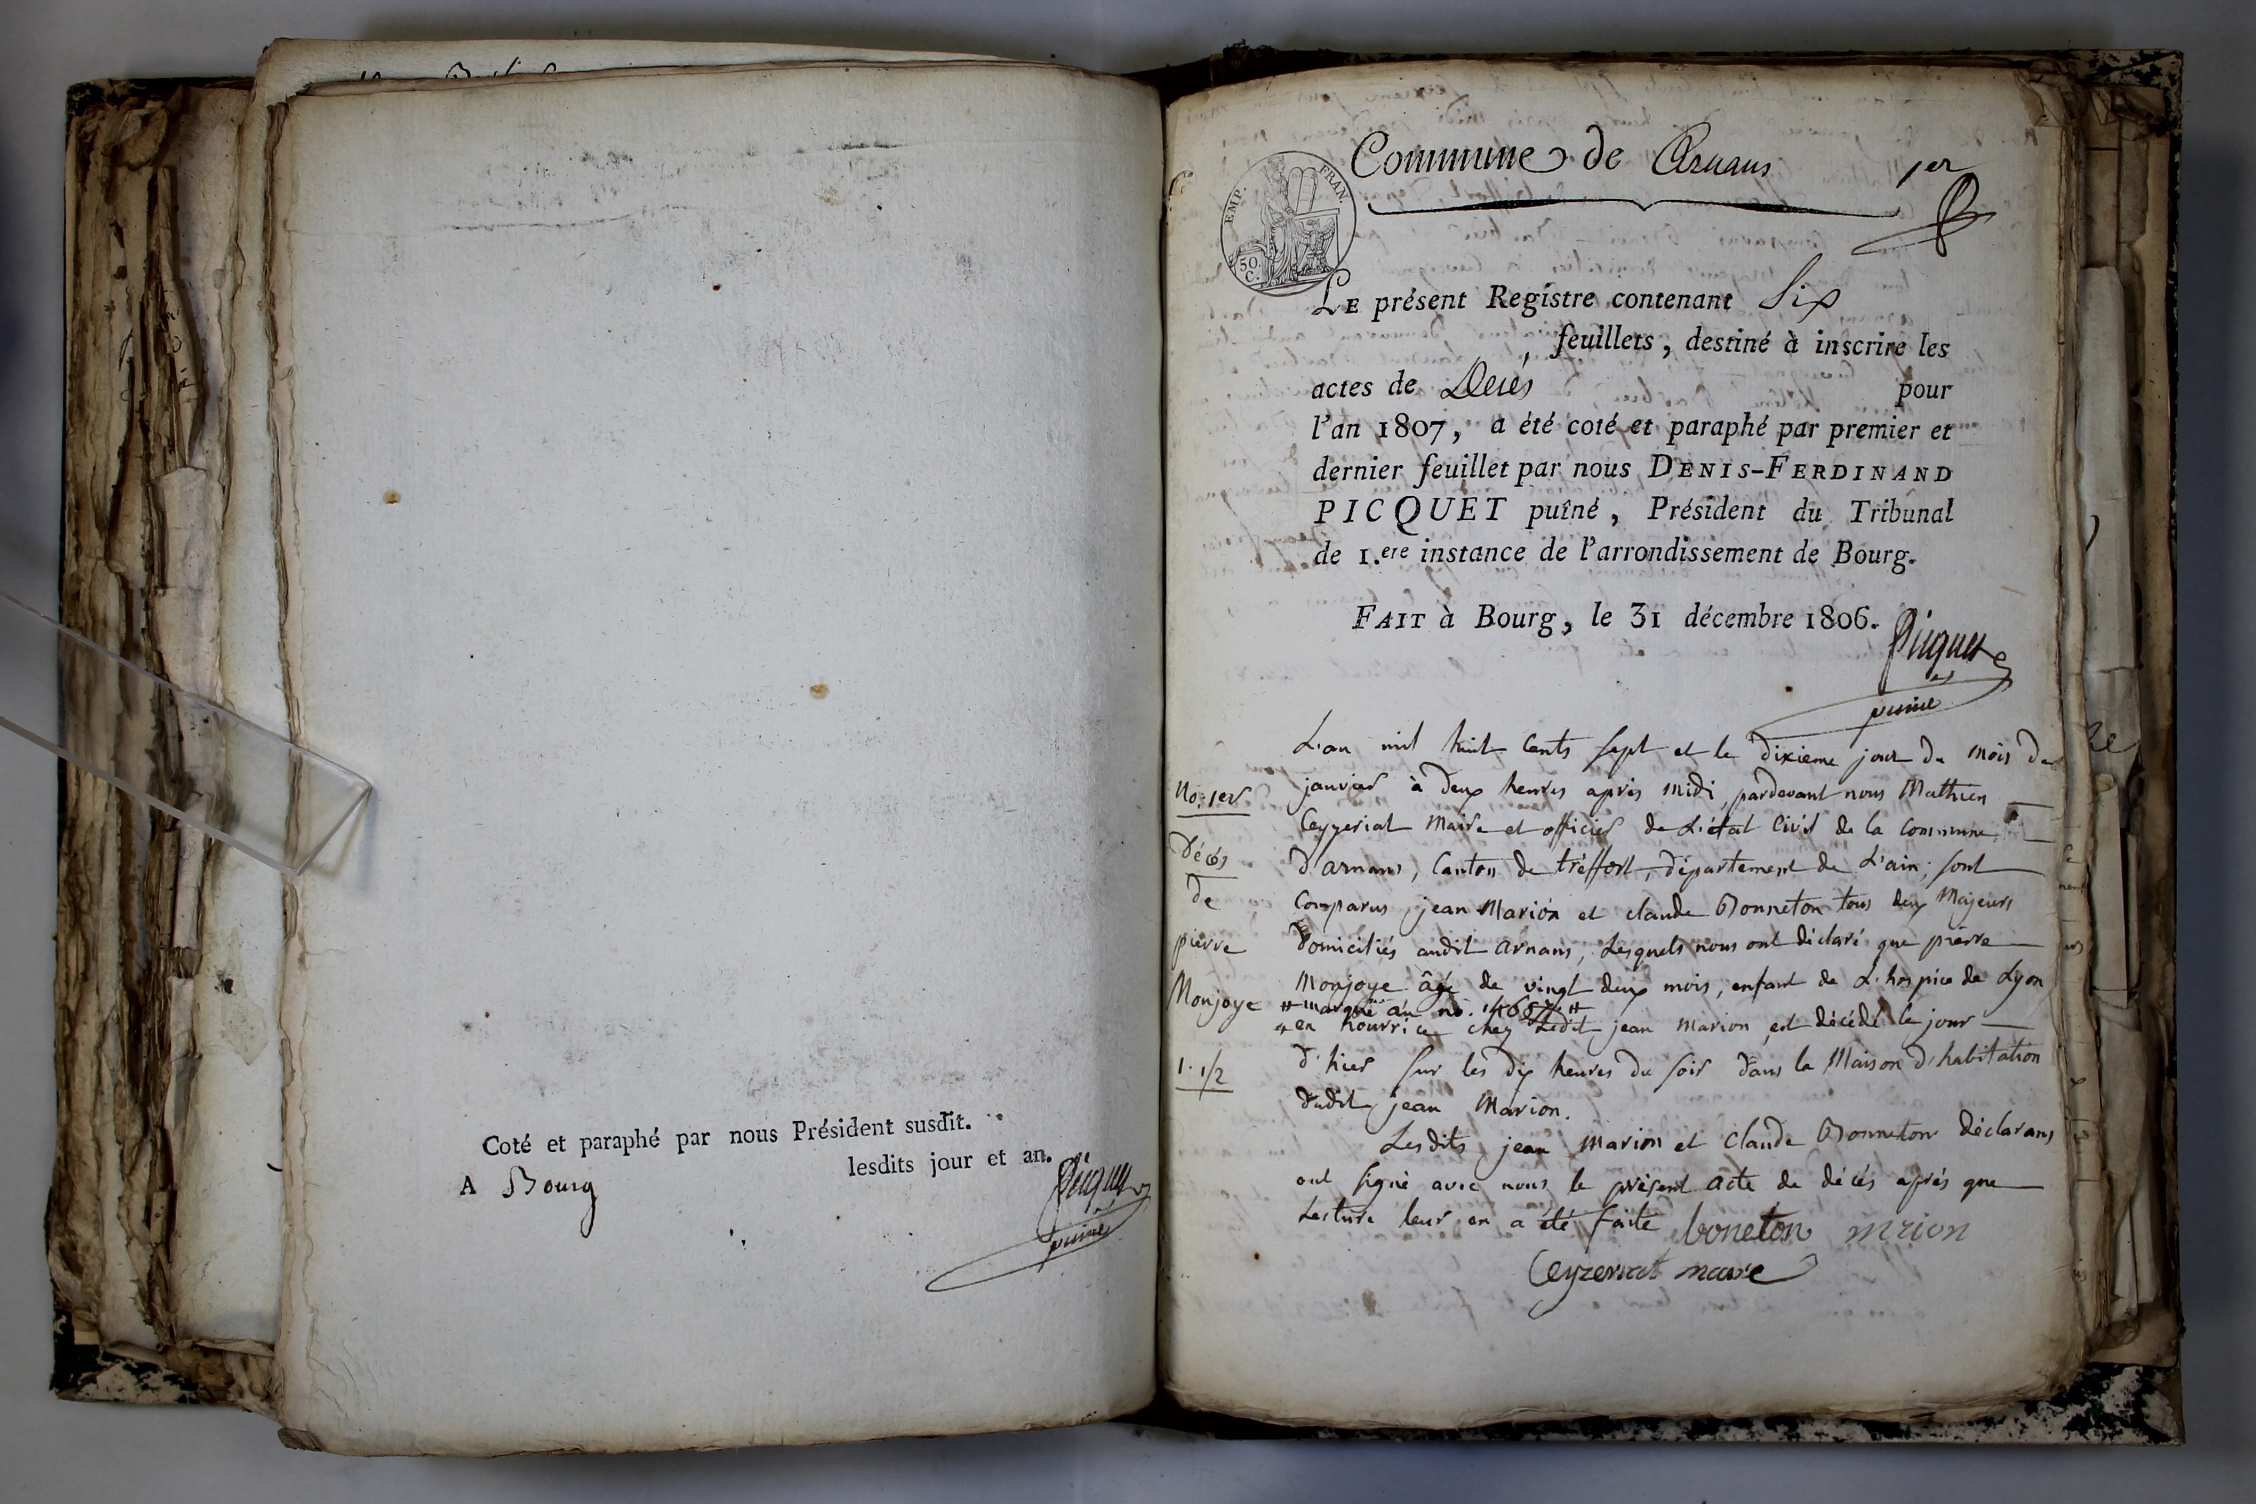 Coté et paraphé par nous Président susdit.
A Bourg lesdits jour et an.
Picquet
puîné
Commune de Arnans
1er
EMP. FRAN.
50. C.
LE présent Registre contenant Six
feuillets, destiné à inscrire les
actes de Décés pour
l'an 1807, a été coté et paraphé par premier et
dernier feuillet par nous DENIS-FERDINAND
PICQUET puîné, Président du Tribunal
de 1.ere instance de l'arrondissement de Bourg.
FAIT à Bourg, le 31 décembre 1806.
Picquet
puîné
No. 1er
Décés
de
pierre
Monjoye
1. 1/2
L'an mil huit Cents sept et le dixieme jour du mois de
janvier à deux heures après midi, pardevant nous Mathieu
Ceyzeriat Maire et officier de L'état Civil de la Commune
d'arnans, Canton de tréffort, département de L'ain, sont
Comparus jean Marion et claude Bonneton tous deux Majeurs
domiciliés audit arnans, Lesquels nous ont déclaré que pierre
Monjoye âgé de vingt deux mois, enfant de L'hospice de Lyon
# marqué au no. #
en nourrice chez Ledit jean Marion, est décédé le jour
d'hier sur les dix heures du soir dans la Maison d'habitation
dudit jean Marion.
Lesdits jean Marion et Claude Bonneton déclarans
ont signé avec nous le présent acte de décés aprés que
Lecture leur en a été faite boneton mrion
Ceyzeriat maire